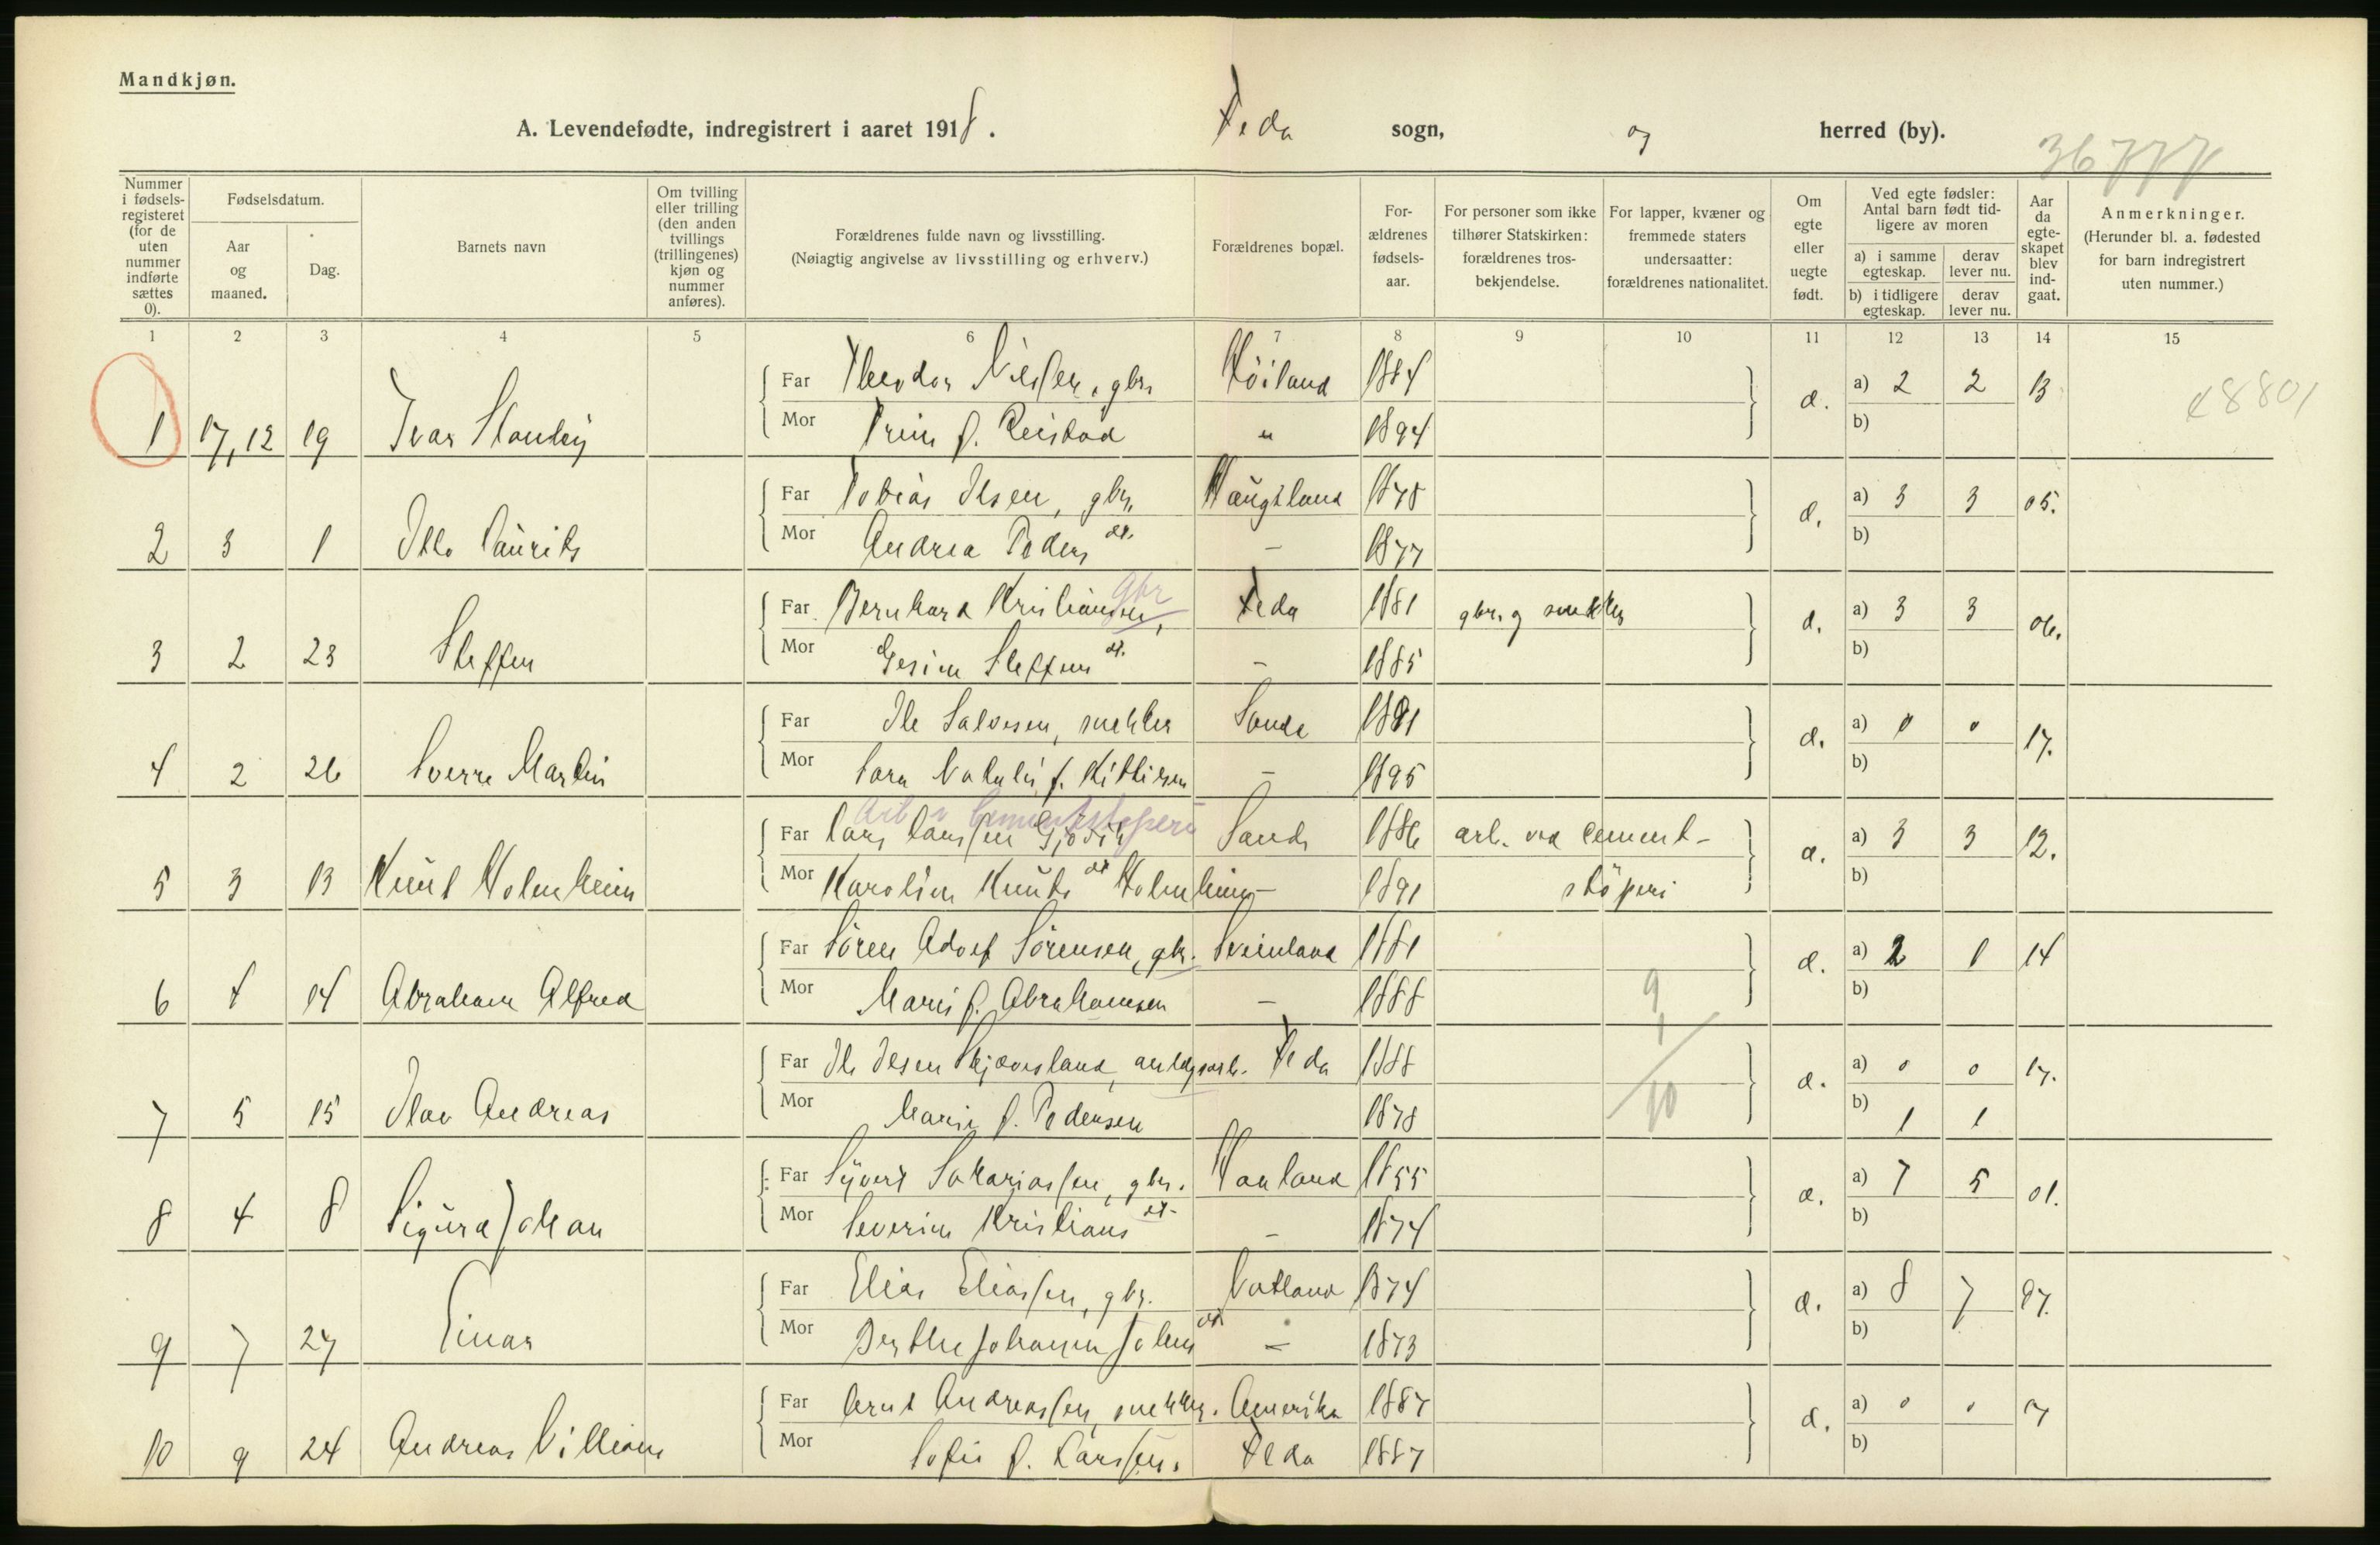 Mandkjøn.
A. Levendefødte, indregistrert i aaret 1918. Feda sogn, og herred (by).
36777
Nummer i fødsels-registeret (for de uten nummer indførte sættes 0).
Fødselsdatum.
Aar og maaned.
Dag.
Barnets navn
Om tvilling eller trilling (den anden tvillings (trillingenes) kjøn og nummer anføres).
Forældrenes fulde navn og livsstilling.
(Nøiagtig angivelse av livsstilling og erhverv.)
Forældrenes bopæl.
For-ældrenes fødsels-aar.
For personer som ikke tilhører Statskirken: forældrenes tros-bekjendelse.
For lapper, kvæner og fremmede staters undersaatter: forældrenes nationalitet.
Om egte eller uegte født.
Ved egte fødsler: Antal barn født tid-ligere av moren
a) i samme egteskap.
derav lever nu.
b) i tidligere egteskap.
derav lever nu.
Aar da egte-skapet blev ind-gaat.
Anmerkninger.
(Herunder bl. a. fødested for barn indregistrert uten nummer.)
1 2 3 4 5 6 7 8 9 10 11 12 13 14 15
Far Theodor Nilssen, gbr. Höiland 1884 a) 2 2 13
1 17,12 19 Ivar Stanley Mor Trine f. Reistad " 1894 e. b)
Far Tobias Olsen, gbr. Haugland 1878 a) 3 3 05.
2 3 1 Otto Laurits Mor Andrea Peders dt. – 1877 e. b)
gbr
Far Bernhard Kristiansen, Feda 1881 gbr. og snekker a) 3 3 06.
3 2 23 Steffen Mor Gesine Steffens dt. – 1885 e. b)
Far Ole Salvesen, snekker Sande 1891 a) 0 0 17.
4 2 26 Sverre Martin Mor Sara Natalie f. Kittilsen – 1895 e. b)
Arb v Cementstøperi
Far Lars Larssen Sande 1886 arb. ved cement- a) 3 3 12.
5 3 13 Knut Holmheim Mor Karoline Knuts dt Holmheim – 1891 støperi e. b)
Far Sören Adolf Sörensen, gbr. Sveinland 1881 a) 2 1 14
6 4 14 Abraham Alfred Mor Marie f. Abrahamsen – 1888 e. b)
9/10
Far Ole Olsen Skjævesland, anlægsarb. Feda 1888 a) 0 0 17.
7 5 15 Olav Andreas Mor Marie f. Pedersen 1878 e. b) 1 1
Far Syvert Sakariassen, gbr. Haaland 1855 a) 7 5 01.
8 4 8 Sigurd Johan Mor Severine Kristians dt. – 1874 e. b)
Far Elias Eliassen, gbr. Vatland 1874 a) 8 7 97.
9 7 27 Einar Mor Berthe Johanne Johns dt – 1873 e. b)
Far Arnt Andreassen, snekker. Amerika 1887 a) 0 0 17
10 9 24 Andreas Villiam Mor Sofie f. Larssen. Feda 1887 e. b)